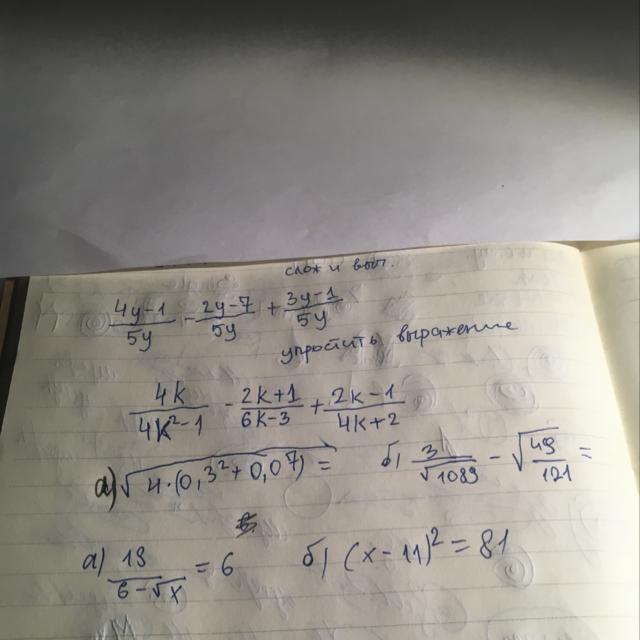 слож и выч.
\frac{4y-1}{5y} - \frac{2y-7}{5y} + \frac{3y-1}{5y}
упростить выражение
\frac{4k}{4k^2-1} - \frac{2k+1}{6k-3} + \frac{2k-1}{4k+2}
а) \sqrt{4·(0,3^2+0,07)} = б) \frac{3}{\sqrt{1089}} - \sqrt{\frac{49}{121}} =
а) \frac{18}{6-\sqrt{x}} = 6 б) (x-11)^2 = 81